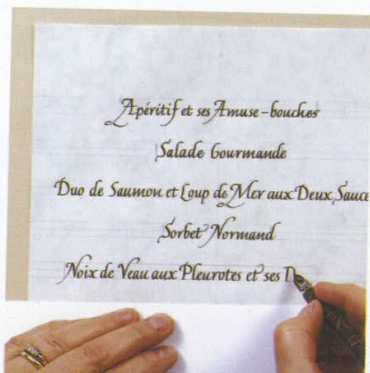 Apéritif et ses Amuse-bouches
Salade Gourmande
Duo de Saumon et Loup de Mer aux Deux Sauce
Sorbet Normand
Noix de Veau aux Pleurotes et ses D